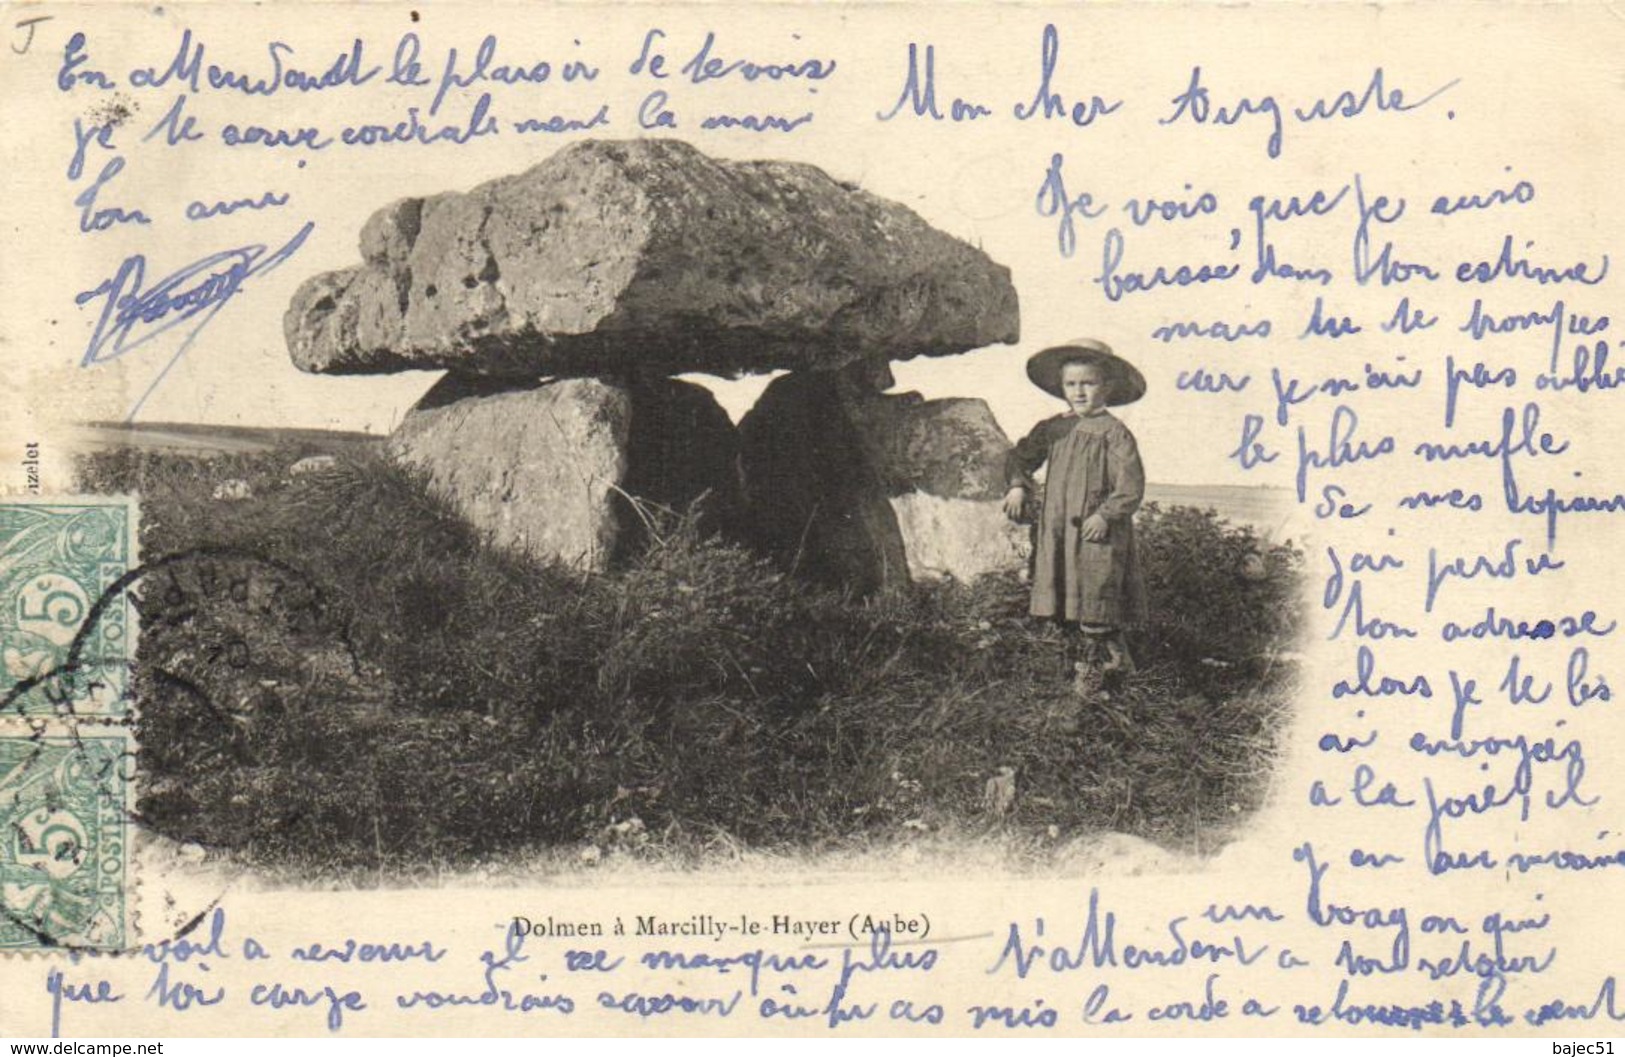 Mon cher Auguste.
Je vois que je aurs
baissé dans ton estime
mais tu te trompes
car je n'ai pas oublié
le plus mufle
de mes copain
j'ai perdu
ton adresse
alors je te les
ai envoyeis
a la Joie, il
y en au
un voagon qui
voila revenir il ne manque plus t'attendent a ton retour
que toi car je voudrais savoir où tu as mis la corde a retourner le vent
En attendant le plaisir de te voir
je te serre cordialement la main
ton ami
J
izelet
5c
POSTES
5c
POSTES
Dolmen à Marcilly-le-Hayer (Aube)
https://www.delcampe.net
bajec51